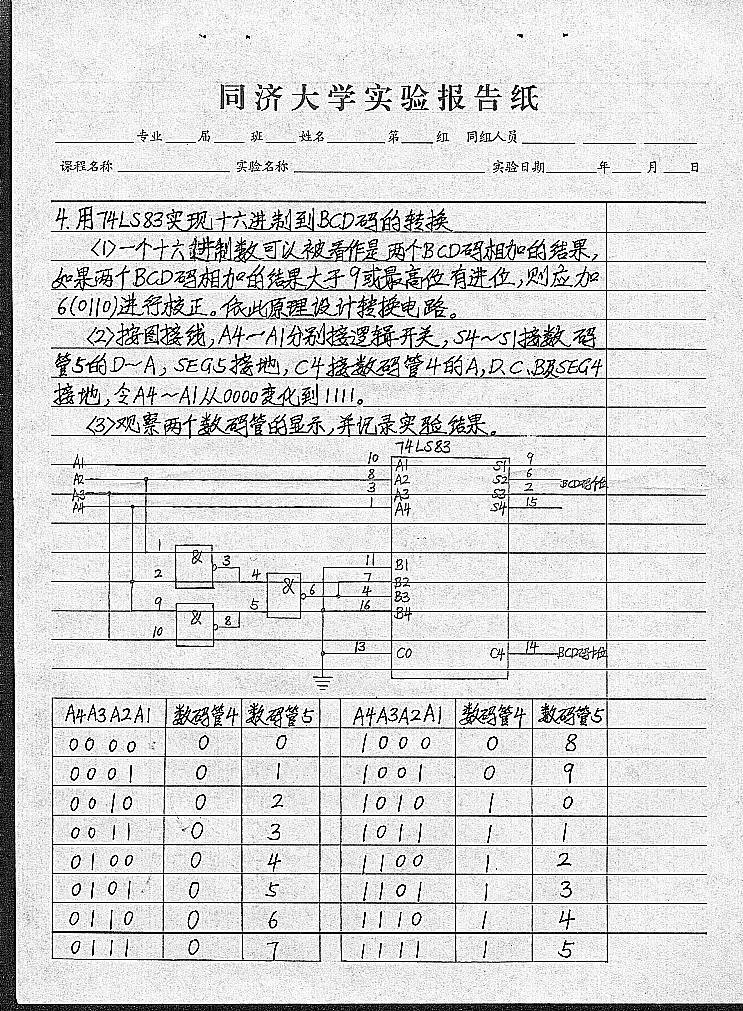 同济大学实验报告纸
专业 届 班 姓名 第 组 同组人员
课程名称 实验名称 实验日期 年 月 日
4. 用74LS83实现十六进制到BCD码的转换
(1) 一个十六进制数可以被看作是两个BCD码相加的结果,
如果两个BCD码相加的结果大于9或最高位有进位,则应加
6(0110)进行校正。依此原理设计转换电路。
(2) 按图接线, A4~A1分别接逻辑开关, S4~S1接数码
管5的D~A, SEG5接地, C4接数码管4的A, D、C、B及SEG4
接地, 令A4~A1从0000变化到1111。
(3) 观察两个数码管的显示,并记录实验结果。
74LS83
A1 10 A1 S1 9
A2 8 A2 S2 6 BCD码个位
A3 3 A3 S3 2
A4 1 A4 S4 15
1 & 3 11 B1
2 4 & 6 7 B2
4 B3
9 & 8 5 16 B4
10
13 C0 C4 14 BCD码十位
A4A3A2A1 数码管4 数码管5 A4A3A2A1 数码管4 数码管5
0000 0 0 1000 0 8
0001 0 1 1001 0 9
0010 0 2 1010 1 0
0011 0 3 1011 1 1
0100 0 4 1100 1 2
0101 0 5 1101 1 3
0110 0 6 1110 1 4
0111 0 7 1111 1 5